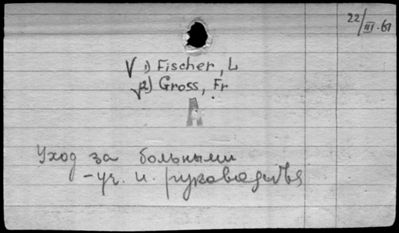 22/III.61
V 1) Fischer, L
V 2) Gross, Fr
A
Уход за больными
- уч. и. руководства